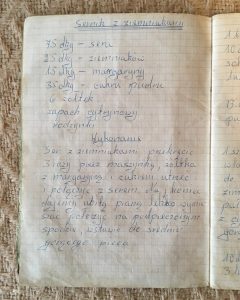 Sernik z ziemniakami
75 dkg - sera
25 dkg - ziemniaków
15 dkg - margaryny
35 dkg - cukru pudru
6 żółtek
zapach cytrynowy
rodzynki
Wykonanie
Ser z ziemniakami przekręcić
3 razy przez maszynkę, żółtka
z margaryną i cukrem utrzeć
i połączyć z serem, na końcu
dajemy ubitą pianę lekko wymie
szać położyć na podpieczonym
spodzie, wstawić do średnio
gorącego pieca